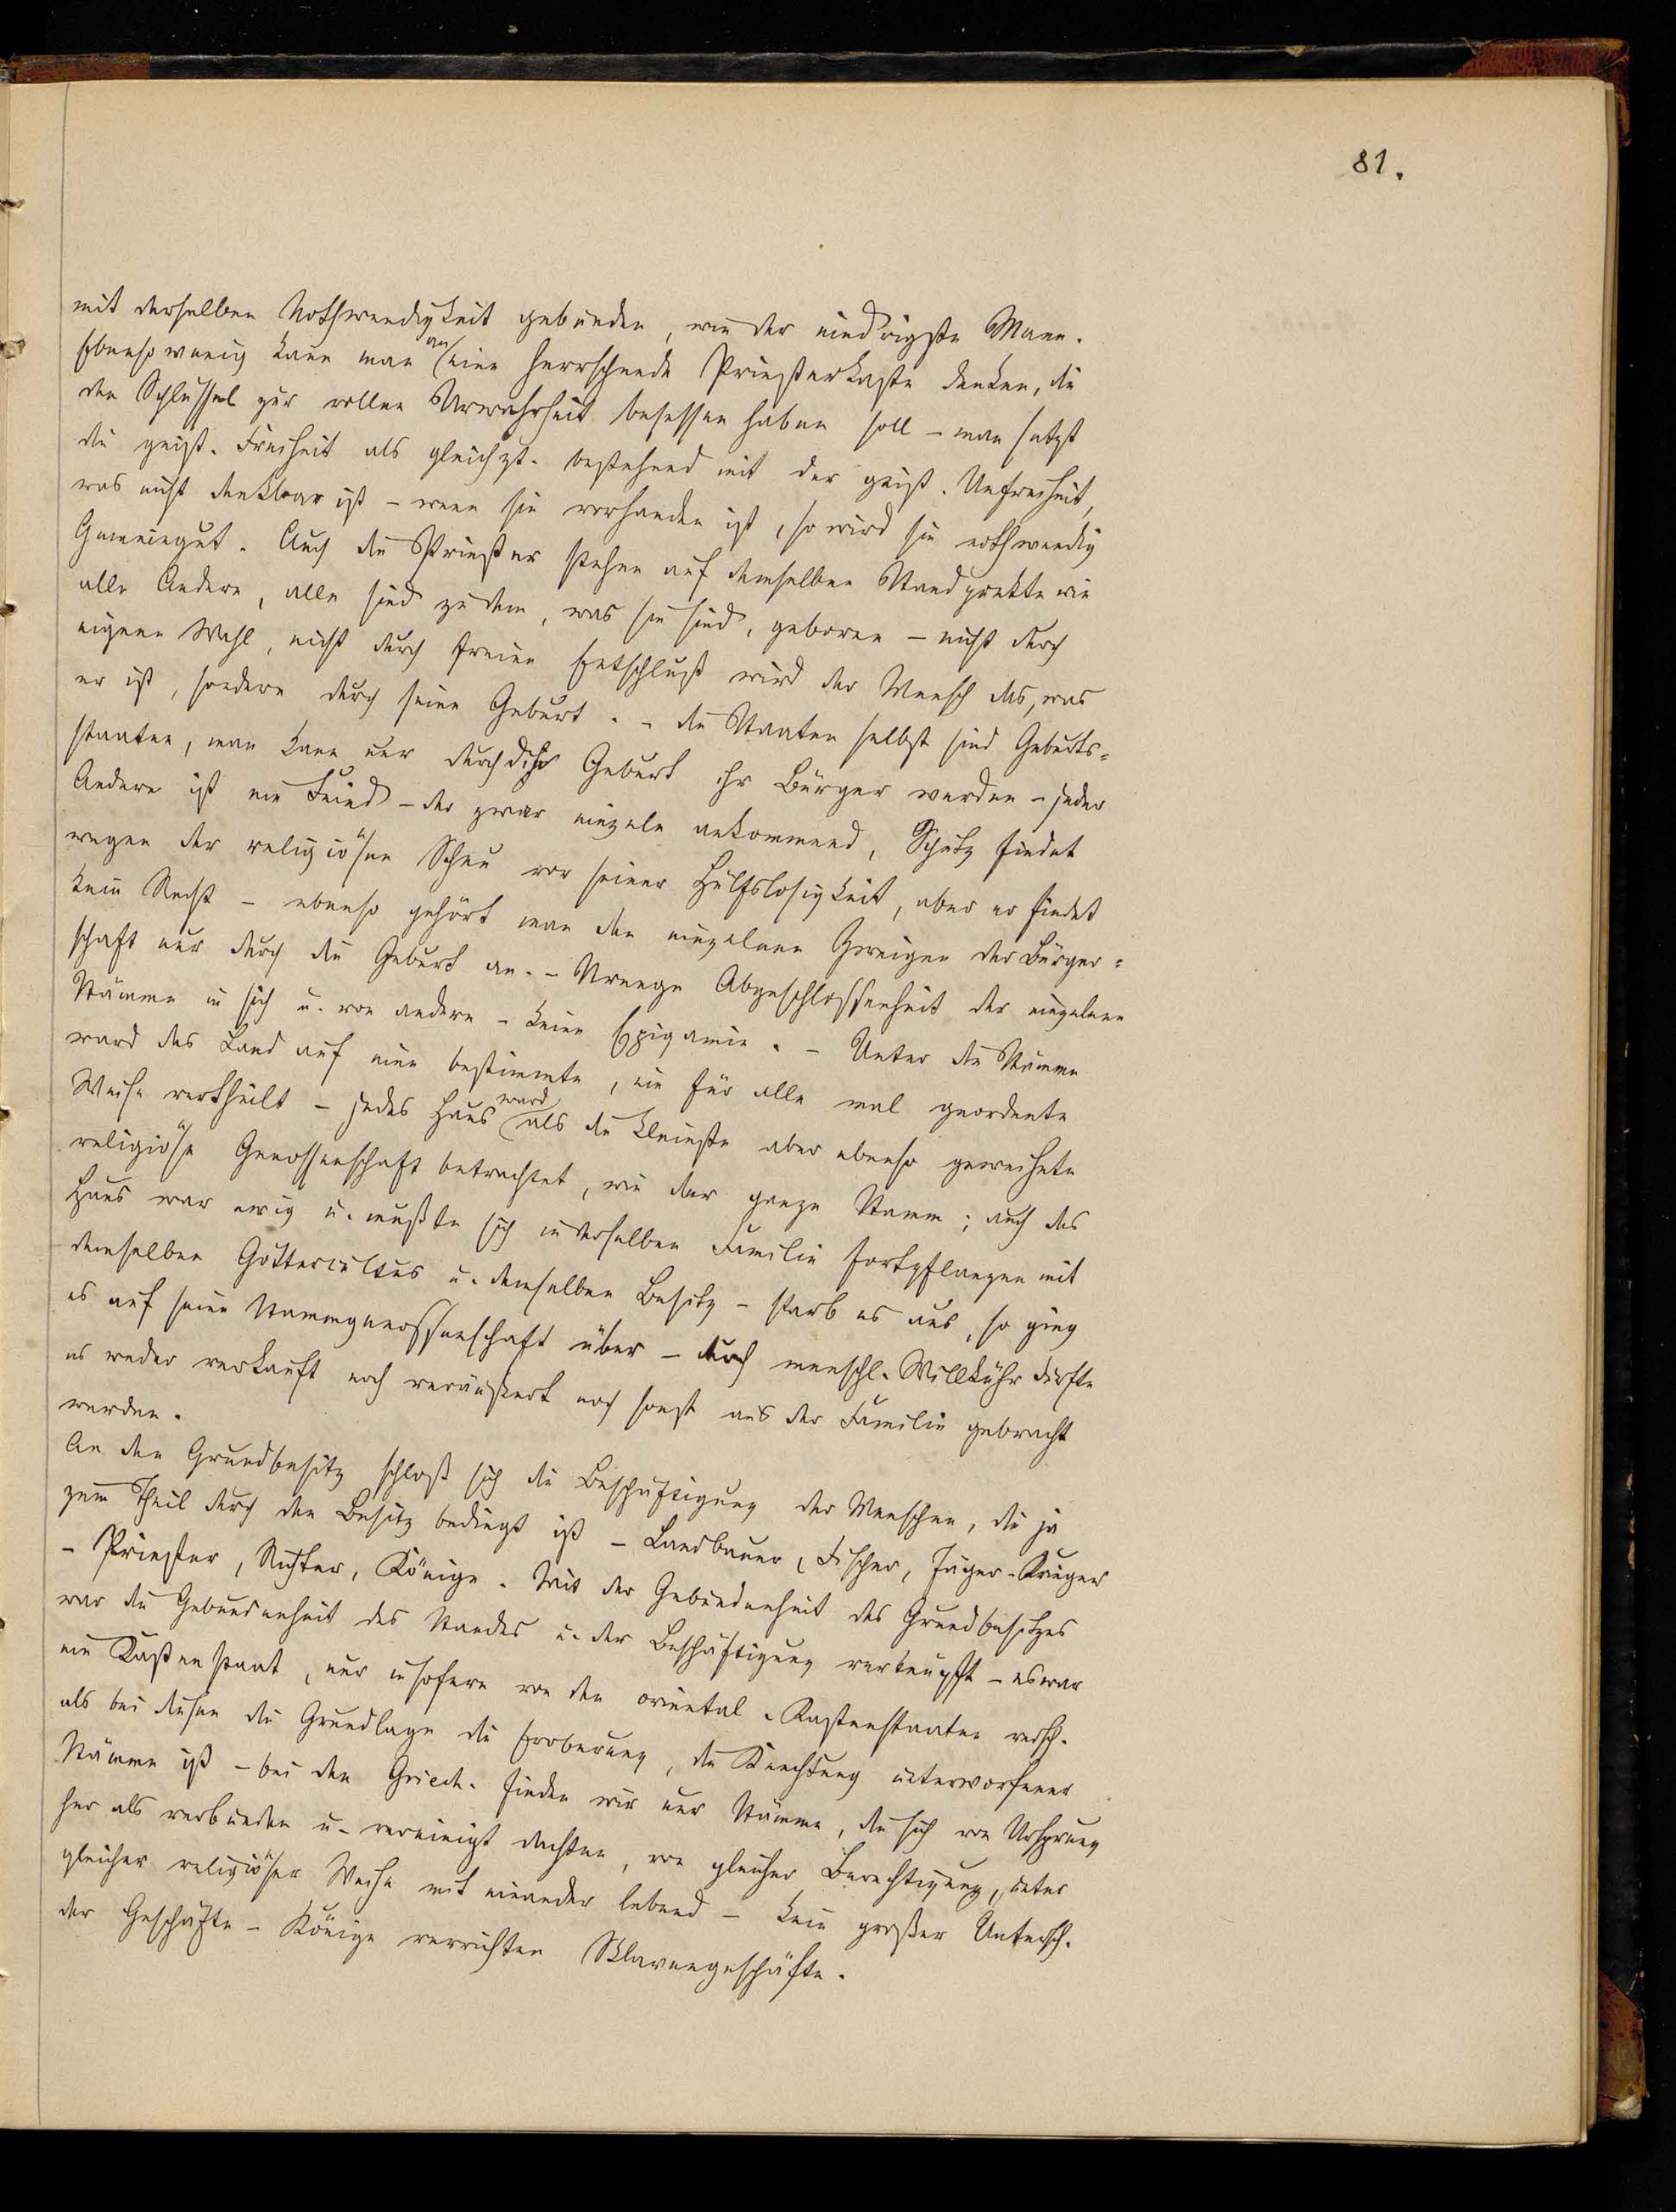 81.
mit derselben Nothwendigkeit gebunden, wie der niedrigste Mann.
Ebensowenig kann man an eine herrschende Priesterkaste denken, die
den Schlüssel zur vollen Urwahrheit besessen haben soll – man setzt
die geist. Freiheit als gleichzt. bestehend mit der geist. Unfreiheit,
was nicht denkbar ist – wenn sie vorhanden ist, so wird sie nothwendig
Gemeingut. Auch die Priester stehen auf demselben Standpunkte wie
alle Andere, alle sind zu dem, was sie sind, geboren – nicht durch
eigene Wahl, nicht durch freien Entschluß wird der Mensch das, was
er ist, sondern durch seine Geburt. – Die Staaten selbst sind Geburts=
staaten, man kann nur durch die Geburt ihr Bürger werden – jeder
Andere ist ein Feind – der zwar einzeln ankommend, Schutz findet
wegen der religiösen Scheu vor seiner Hülfslosigkeit, aber er findet
kein Recht – ebenso gehört man den einzelnen Zweigen der Bürger=
schaft nur durch die Geburt an. – Strenge Abgeschlossenheit der einzelnen
Stämme in sich u. von andern – keine Epigamie. – Unter die Stämme
ward das Land auf eine bestimmte, ein für alle mal geordnete
Weise vertheilt – jedes Haus ward als die kleinste aber ebenso geweihete
religiöse Genossenschaft betrachtet, wie der ganze Stamm; auch das
Haus war ewig u. mußte sich in derselben Familie fortpflanzen mit
demselben Göttercultus u. demselben Besitz – starb es aus, so ging
es auf seine Stammgenossenschaft über – durch menschl. Willkühr durfte
es weder verkauft noch veräußert noch sonst aus der Familie gebracht
werden.
An den Grundbesitz schloß sich die Beschäftigung der Menschen, die ja
zum Theil durch den Besitz bedingt ist – Landbauer, Fischer, Jäger – Krieger
– Priester, Richter, Könige. Mit der Gebundenheit des Grundbesitzes
war die Gebundenheit des Standes u. der Beschäftigung verknüpft – es war
ein Kastenstaat, nur insofern von den oriental. Kastenstaaten versch.
als bei diesen die Grundlage die Eroberung, die Knechtung unterworfener
Stämme ist – bei den Griech. finden wir nur Stämme, die sich von Ursprung
her als verbunden u. vereinigt dachten, von gleicher Berechtigung, unter
gleicher religiöser Weihe mit einander lebend – kein großer Untersch.
der Geschäfte – Könige verrichten Sklavengeschäfte.